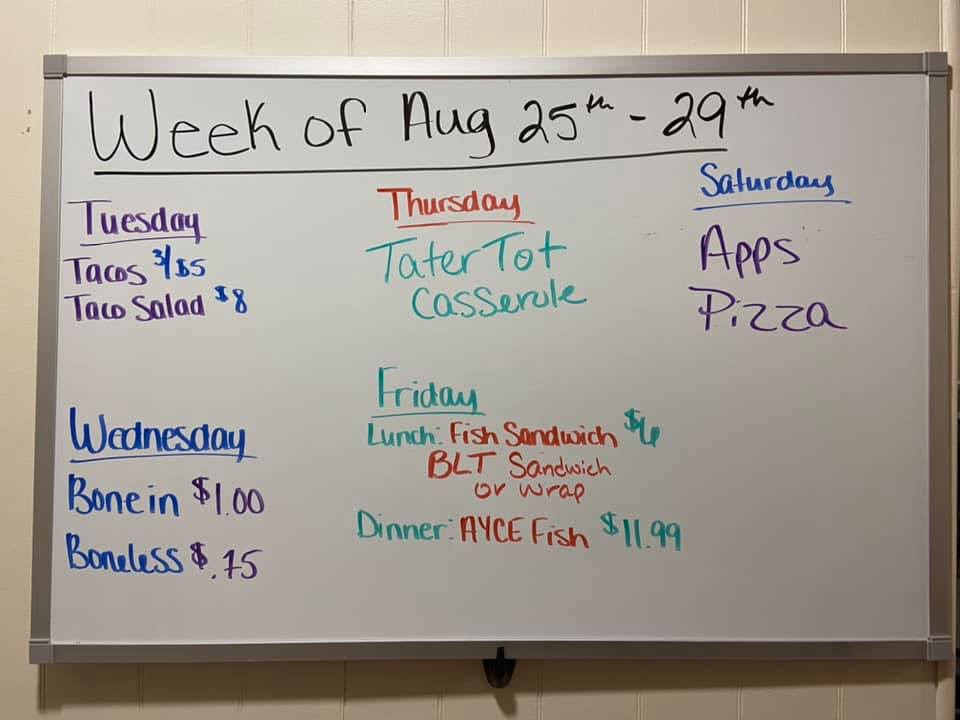 Week of Aug 25th - 29th
Tuesday
Tacos 3/$5
Taco Salad $8
Wednesday
Bone in $1.00
Boneless $.75
Thursday
Tater Tot
Casserole
Friday
Lunch: Fish Sandwich $6
BLT Sandwich
or wrap
Dinner: AYCE Fish $11.99
Saturday
Apps
Pizza